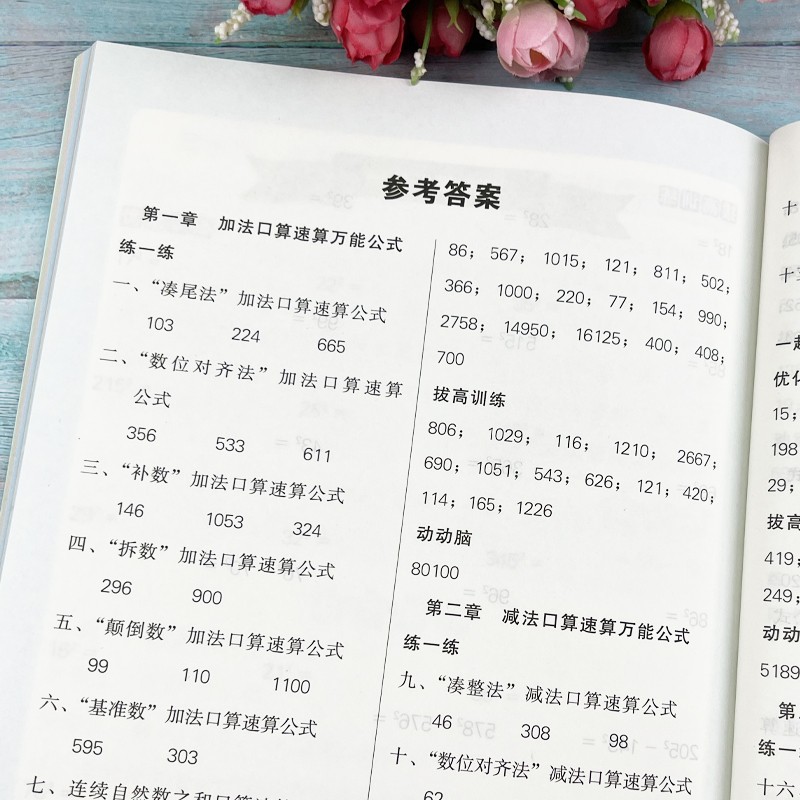 参考答案
第一章 加法口算速算万能公式
练一练
一、“凑尾法”加法口算速算公式
103 224 665
二、“数位对齐法”加法口算速算
公式
356 533 611
三、“补数”加法口算速算公式
146 1053 324
四、“拆数”加法口算速算公式
296 900
五、“颠倒数”加法口算速算公式
99 110 1100
六、“基准数”加法口算速算公式
595 303
七、连续自然数之和口算速算
86；567；1015；121；811；502；
366；1000；220；77；154；990；
2758；14950；16125；400；408；
700
拔高训练
806；1029；116；1210；2667；
690；1051；543；626；121；420；
114；165；1226
动动脑
80100
第二章 减法口算速算万能公式
练一练
九、“凑整法”减法口算速算公式
46 308 98
十、“数位对齐法”减法口算速算公式
62
十
十三
一起
优化
15；
198
29；
拔高
419；
249；
动动
5189
第
练一
十六